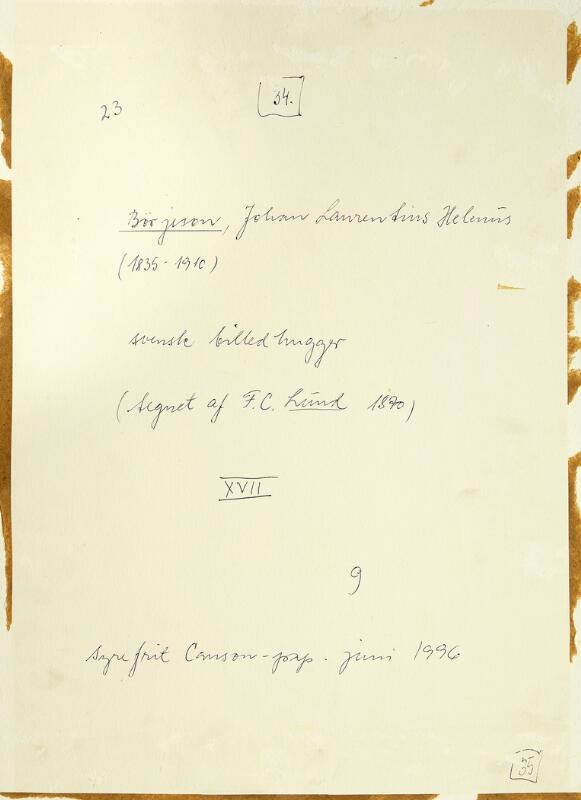 23
34.
Börjeson, Johan Laurentius Helenus
(1835-1910)
svensk billedhugger
(tegnet af F.C. Lund 1870)
XVII
9
syrefrit Canson-pap. juni 1996
35